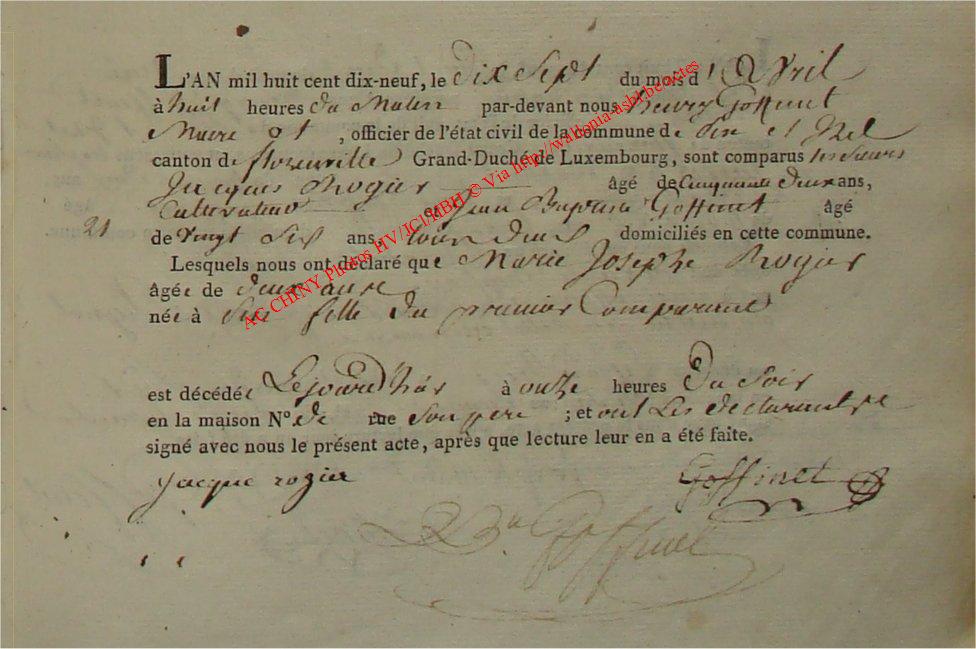 L'AN mil huit cent dix-neuf, le dix sept du mois d'Avril
à huit heures du Matin par-devant nous henry Goffinet
Maire et , officier de l'état civil de la commune de et Izel
canton de florenville Grand-Duché de Luxembourg, sont comparus les sieurs
Jacques Rogier âgé de Cinquante deux ans,
Cultivateur et Jean Baptiste Goffinet âgé
21 de vingt six ans, tous deux domiciliés en cette commune.
Lesquels nous ont déclaré que Marie Josephe Rogier
âgée de deux ans
née à fille du premier Comparant
est décédée Le jour d'hier à onze heures Du Soir
en la maison N° de rue Son père ; et ont Les declarants
signé avec nous le présent acte, après que lecture leur en a été faite.
jacque rogier Goffinet
Goffinet
AC CHINY Photos HV/JCl/MBH © Via http://wallonia-asbl.be/actes